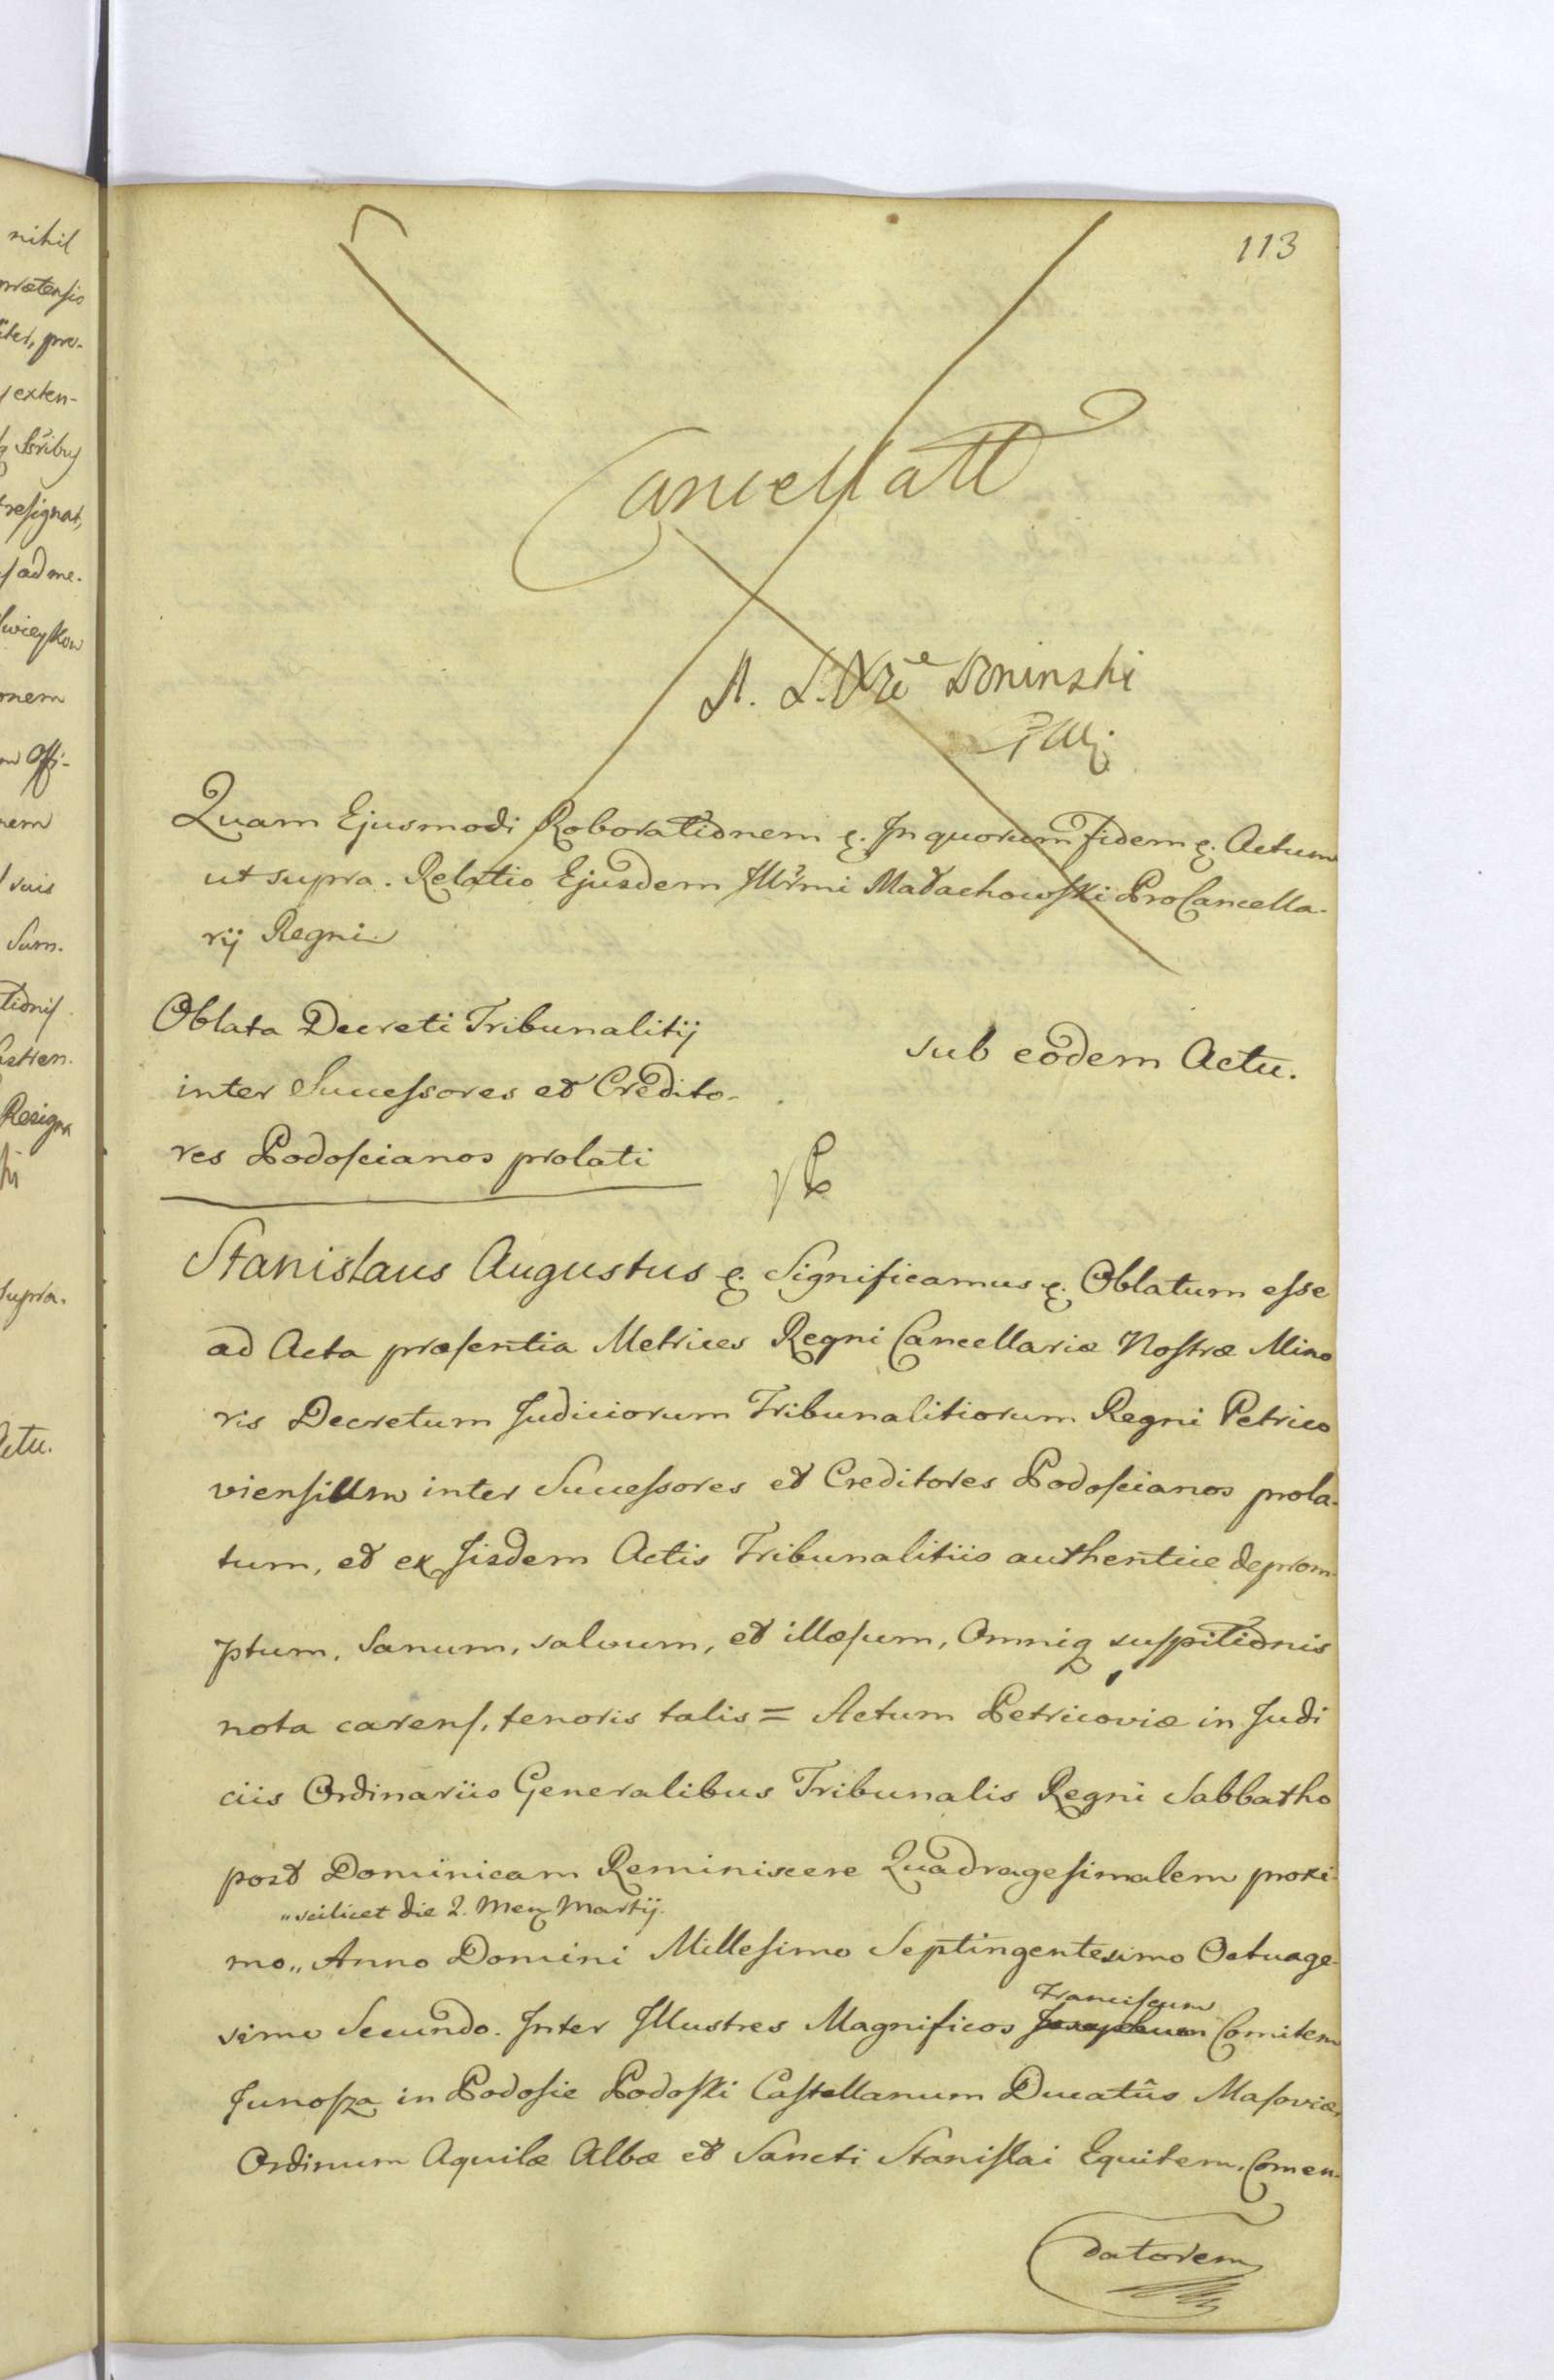 nihil
prætensio
iter, pre-
exten-
Ssribus
resignat,
ad me.
onem
Offi-
nem
suis
Sum.
tionis
Resigna
supra.
Actu.
113
Cancellatt
A. L. Xże Poninski
Quam Ejusmodi Roborationem &. In quorum fidem &. Actum
ut supra. Relatio Ejusdem Illŕmi Małachowski ProCancella-
rij Regni
Oblata Decreti Tribunalitij
inter Successores et Credito-
res Podoscianos prolati
sub eodem Actu.
Stanislaus Augustus &. Significamus &. Oblatum esse
ad Acta præsentia Metrices Regni Cancellariæ Nostræ Mino
ris Decretum Judiciorum Tribunalitiorum Regni Petrico
viensium inter Successores et Creditores Podoscianos prola-
tum, et ex Iisdem Actis Tribunalitiis authentice deprom-
ptum, Sanum, salvum, et illæsum, Omniq suspitionis
nota carens, tenoris talis = Actum Petricoviæ in Judi
ciis Ordinariis Generalibus Tribunalis Regni Sabbatho
post Dominicam Reminiscere Quadragesimalem proxi-
"scilicet die 2. Mens Martij.
mo,, Anno Domini Millesimo Septingentesimo Octuage-
Franciscum
simo Secundo. Inter Illustres Magnificos Josephum Comitem
Junosza in Podosie Podoski Castellanum Ducatûs Masoviæ,
Ordinum Aquilæ Albæ et Sancti Stanislai Equitem, Comen-
datorem